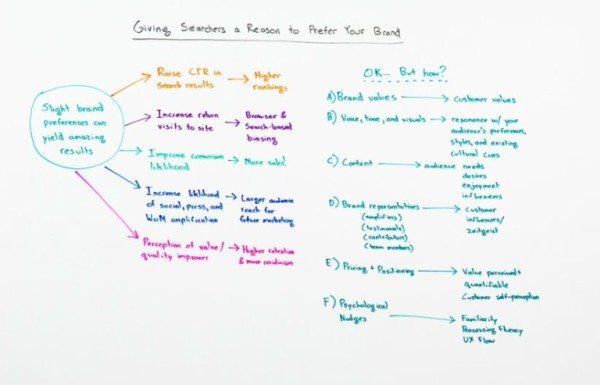 Giving Searchers a Reason to Prefer Your Brand
Slight brand
preferences can
yield amazing
results
Raise CTR in
Search results
Higher
rankings
Increase return
visits to site
Browser &
Search-based
biasing
Improve conversion
likelihood
More sales!
Increase likelihood
of social, press, and
WoM amplification
Larger audience
reach for
future marketing
Perception of value/
quality improves
Higher retention
& more recidivism
OK... But how?
A) Brand values
Customer values
B) Voice, tone, and visuals
resonance w/ your
audience's preferences,
styles, and existing
cultural cues
C) Content
audience needs
desires
enjoyment
influencers
D) Brand representatives
(amplifiers)
(testimonials)
(contributors)
(team members)
Customer
influencers/
zeitgeist
E) Pricing + Positioning
Value perceived +
quantifiable
Customer self-perception
F) Psychological
Nudges
Familiarity
Processing fluency
UX Flow